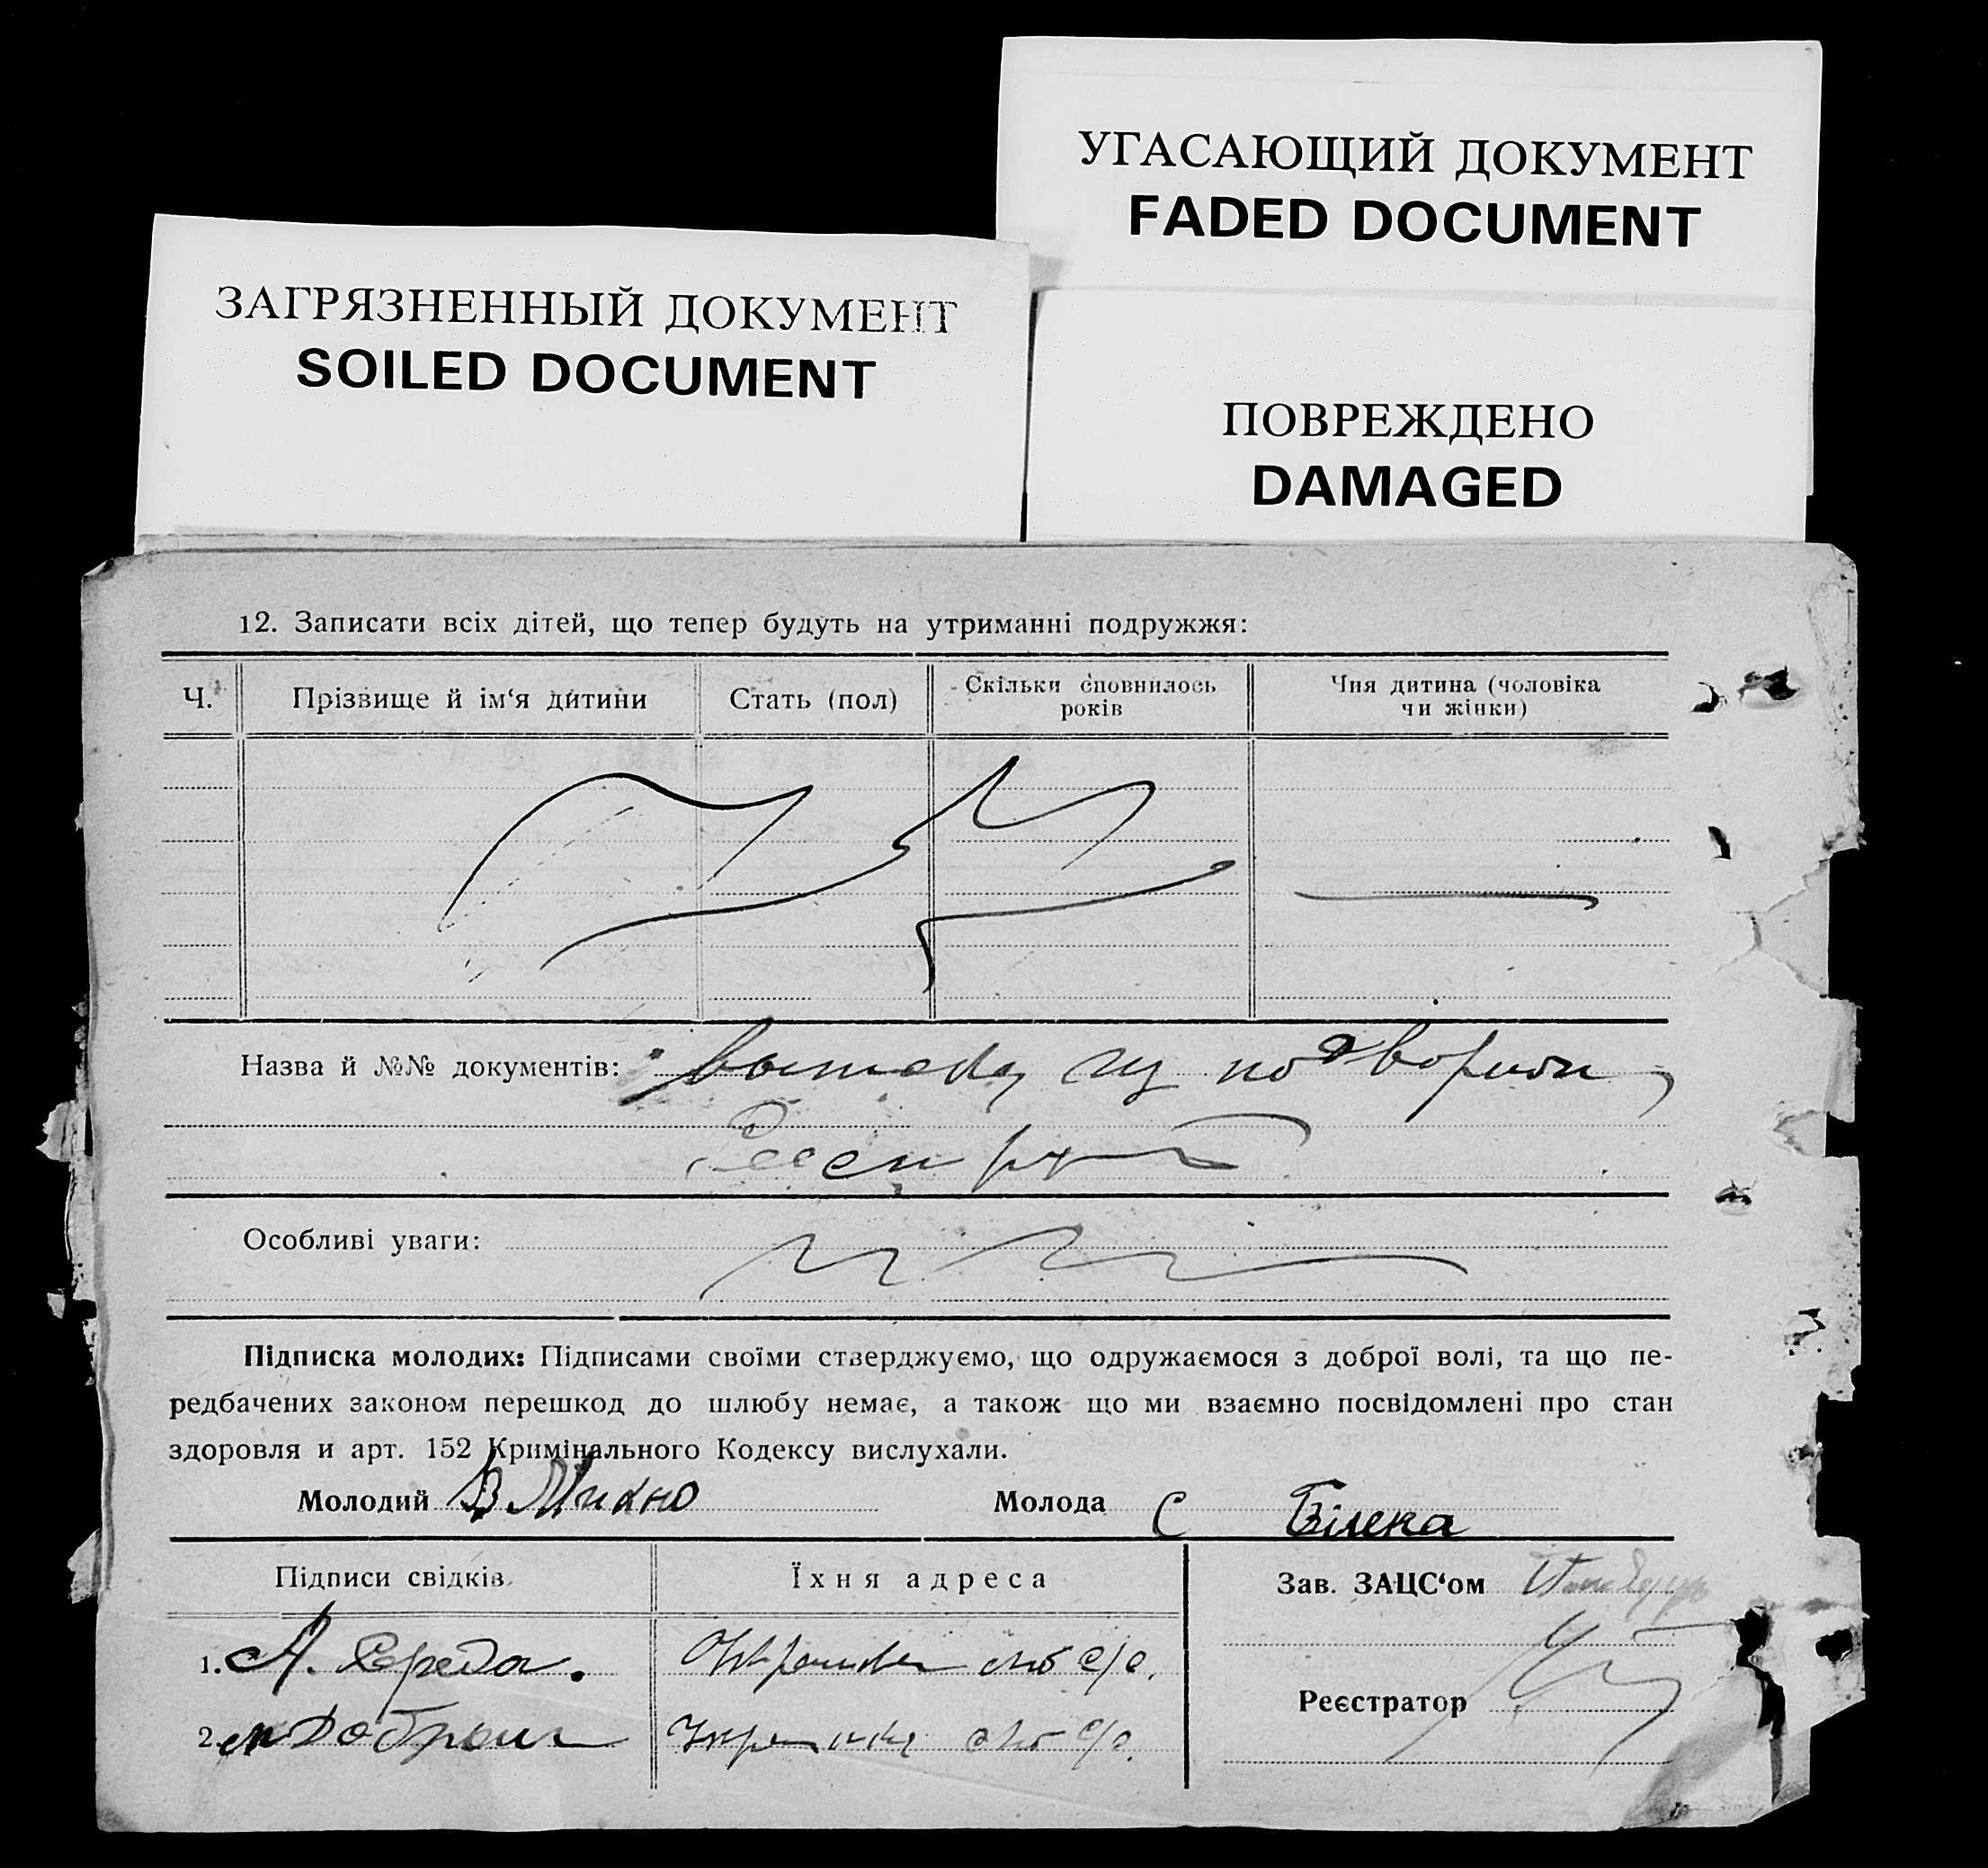 УГАСАЮЩИЙ ДОКУМЕНТ
FADED DOCUMENT
ЗАГРЯЗНЕННЫЙ ДОКУМЕНТ
SOILED DOCUMENT
ПОВРЕЖДЕНО
DAMAGED
12. Записати всіх дітей, що тепер будуть на утриманні подружжя:
Ч. Прізвище й ім‘я дитини Стать (пол) Скільки сповнилось років Чия дитина (чоловіка чи жінки)
Назва й №№ документів:
Особливі уваги:
Підписка молодих: Підписами своїми стверджуємо, що одружаємося з доброї волі, та що пе-
редбачених законом перешкод до шлюбу немає, а також що ми взаємно посвідомлені про стан
здоровля и арт. 152 Кримінального Кодексу вислухали.
Молодий В Михно Молода С Білека
Підписи свідків. Їхня адреса Зав. ЗАЦС‘ом
1. А. Середа.
Реєстратор
2.